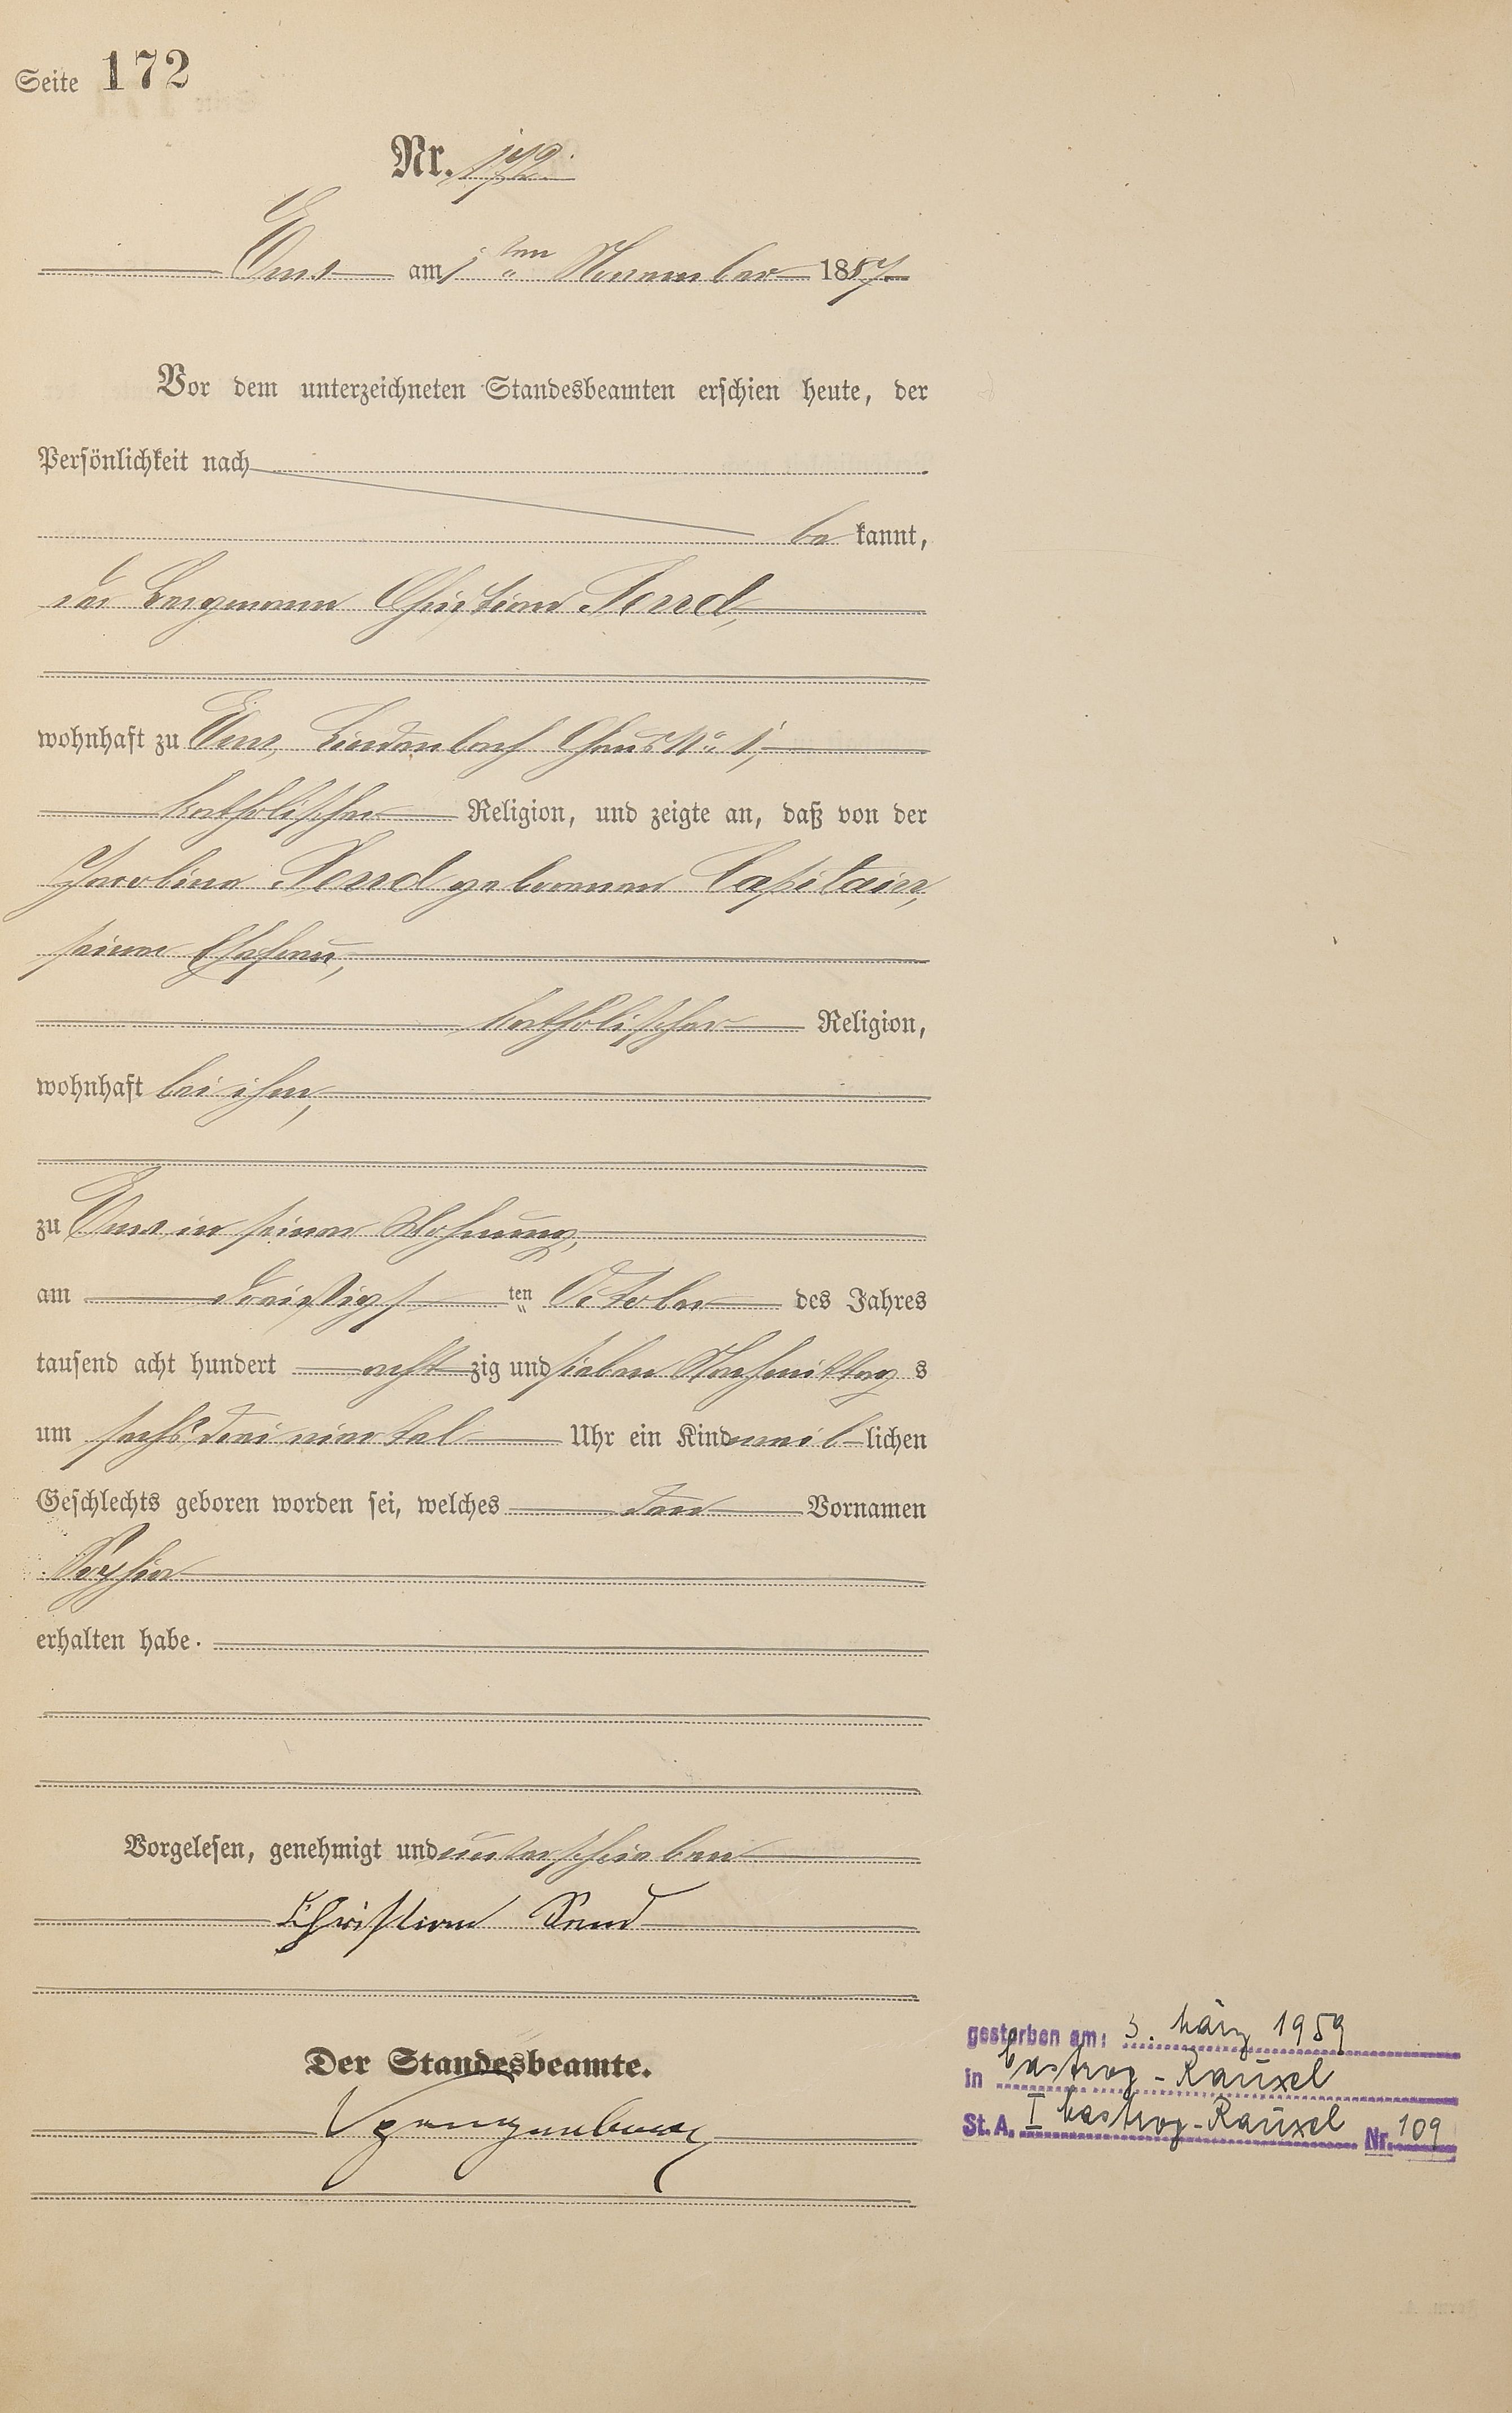 Seite 172
Nr. 172.
Ems am 1 ten November 1887
Vor dem unterzeichneten Standesbeamten erschien heute, der
Persönlichkeit nach
be kannt,
der Bergmann Christian
wohnhaft zu Ems, Lindenbach Haus No 1,
katholischer Religion, und zeigte an, daß von der
Jacobina geborenen Capitain,
seiner Ehefrau,
katholischer Religion,
wohnhaft bei ihm,
zu Ems in seiner Wohnung,
am dreißigs ten October des Jahres
tausend acht hundert acht zig und sieben Nachmittag s
um sechs dreiviertel Uhr ein Kind weib lichen
Geschlechts geboren worden sei, welches den Vornamen
Sophie
erhalten habe.
Vorgelesen, genehmigt und unterschrieben
Christian
Der Standesbeamte.
gestorben am: 3. März 1959
in Castrop-Rauxel
St. A. I Castrop-Rauxel Nr. 109